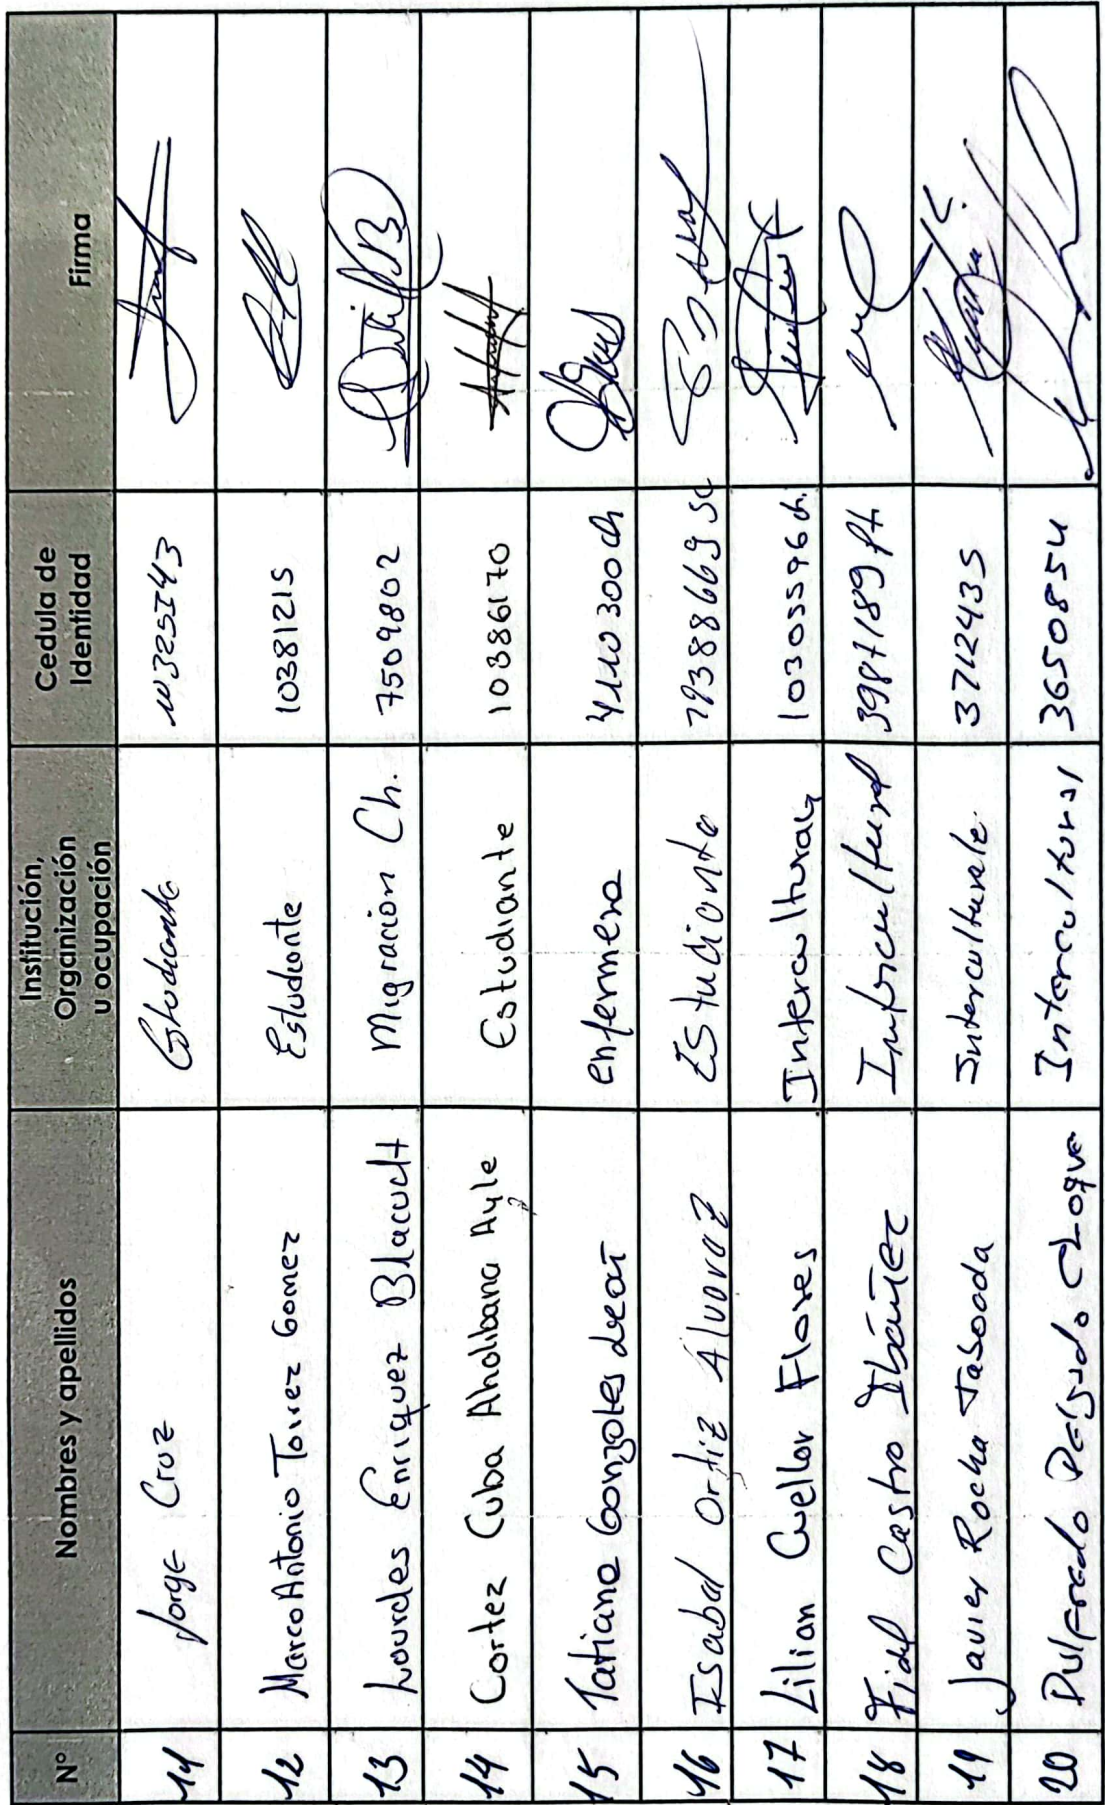 N° Nombres y apellidos Institución, Organización u ocupación Cedula de Identidad Firma
11 Jorge Cruz Estudiante
12 Marco Antonio Torrez Gomez Estudiante 10381215
13 Lourdes Enriquez Blacutt Migración Ch. 7509802
14 Cortez Cuba Aholibana Ayle Estudiante 10386170
15 Tatiana Gonzales enfermera 4110300 ch
16 Isabel Ortiz Alvarez Estudiante 79388669 SC
17 Lilian Cuellar Flores Intercultural 10305596 ch.
18 Fidel Castro Ibáñez Intercultural 3987189 Pt
19 Javier Rocha Taboada Interculturale 3712435
20 Pulfredo Choque Intercultural 3650854